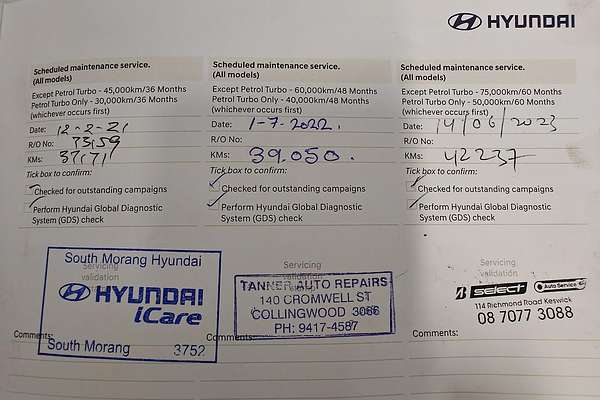 HYUNDAI
Scheduled maintenance service.
(All models)
Except Petrol Turbo - 45,000km/36 Months
Petrol Turbo Only - 30,000km/36 Months
(whichever occurs first)
Date: 12-2-21
R/O No: 33159
KMs: 37171
Tick box to confirm:
Checked for outstanding campaigns
Perform Hyundai Global Diagnostic
System (GDS) check
Servicing
validation
South Morang Hyundai
HYUNDAI
iCare
South Morang 3752
Comments:
Scheduled maintenance service.
(All models)
Except Petrol Turbo - 60,000km/48 Months
Petrol Turbo Only - 40,000km/48 Months
(whichever occurs first)
Date: 1-7-2022.
R/O No:
KMs: 39.050.
Tick box to confirm:
Checked for outstanding campaigns
Perform Hyundai Global Diagnostic
System (GDS) check
Servicing
TANNER AUTO REPAIRS
140 CROMWELL ST
COLLINGWOOD 3066
PH: 9417-4587
Comments:
Scheduled maintenance service.
(All models)
Except Petrol Turbo - 75,000km/60 Months
Petrol Turbo Only - 50,000km/60 Months
(whichever occurs first)
Date: 14/06/2023
R/O No:
KMs: 42237
Tick box to confirm:
Checked for outstanding campaigns
Perform Hyundai Global Diagnostic
System (GDS) check
Servicing
validation
B select Auto Service
114 Richmond Road Keswick
08 7077 3088
Comments: